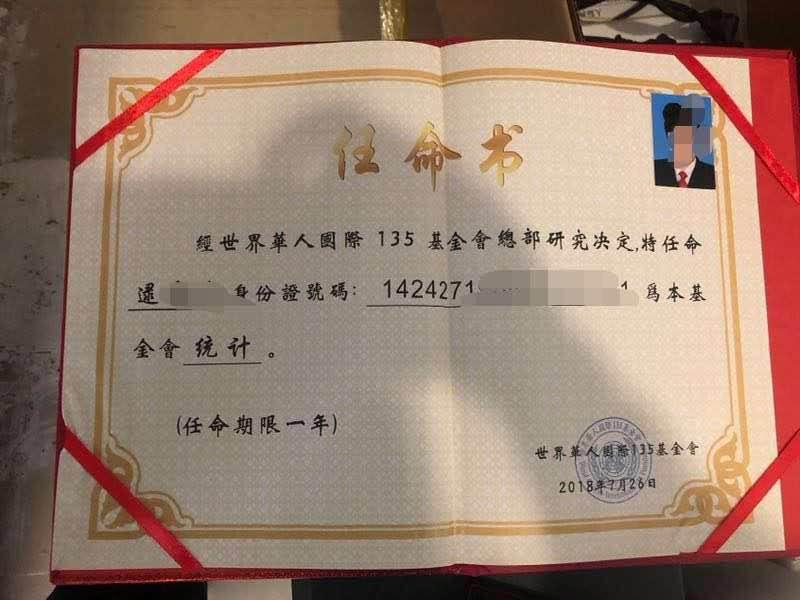 任命书
經世界華人國際 135 基金會總部研究决定,特任命
身份證號碼: 1424271 1 爲本基
金會 统计 。
(任命期限一年)
世界華人國際135基金會
2018年7月26日